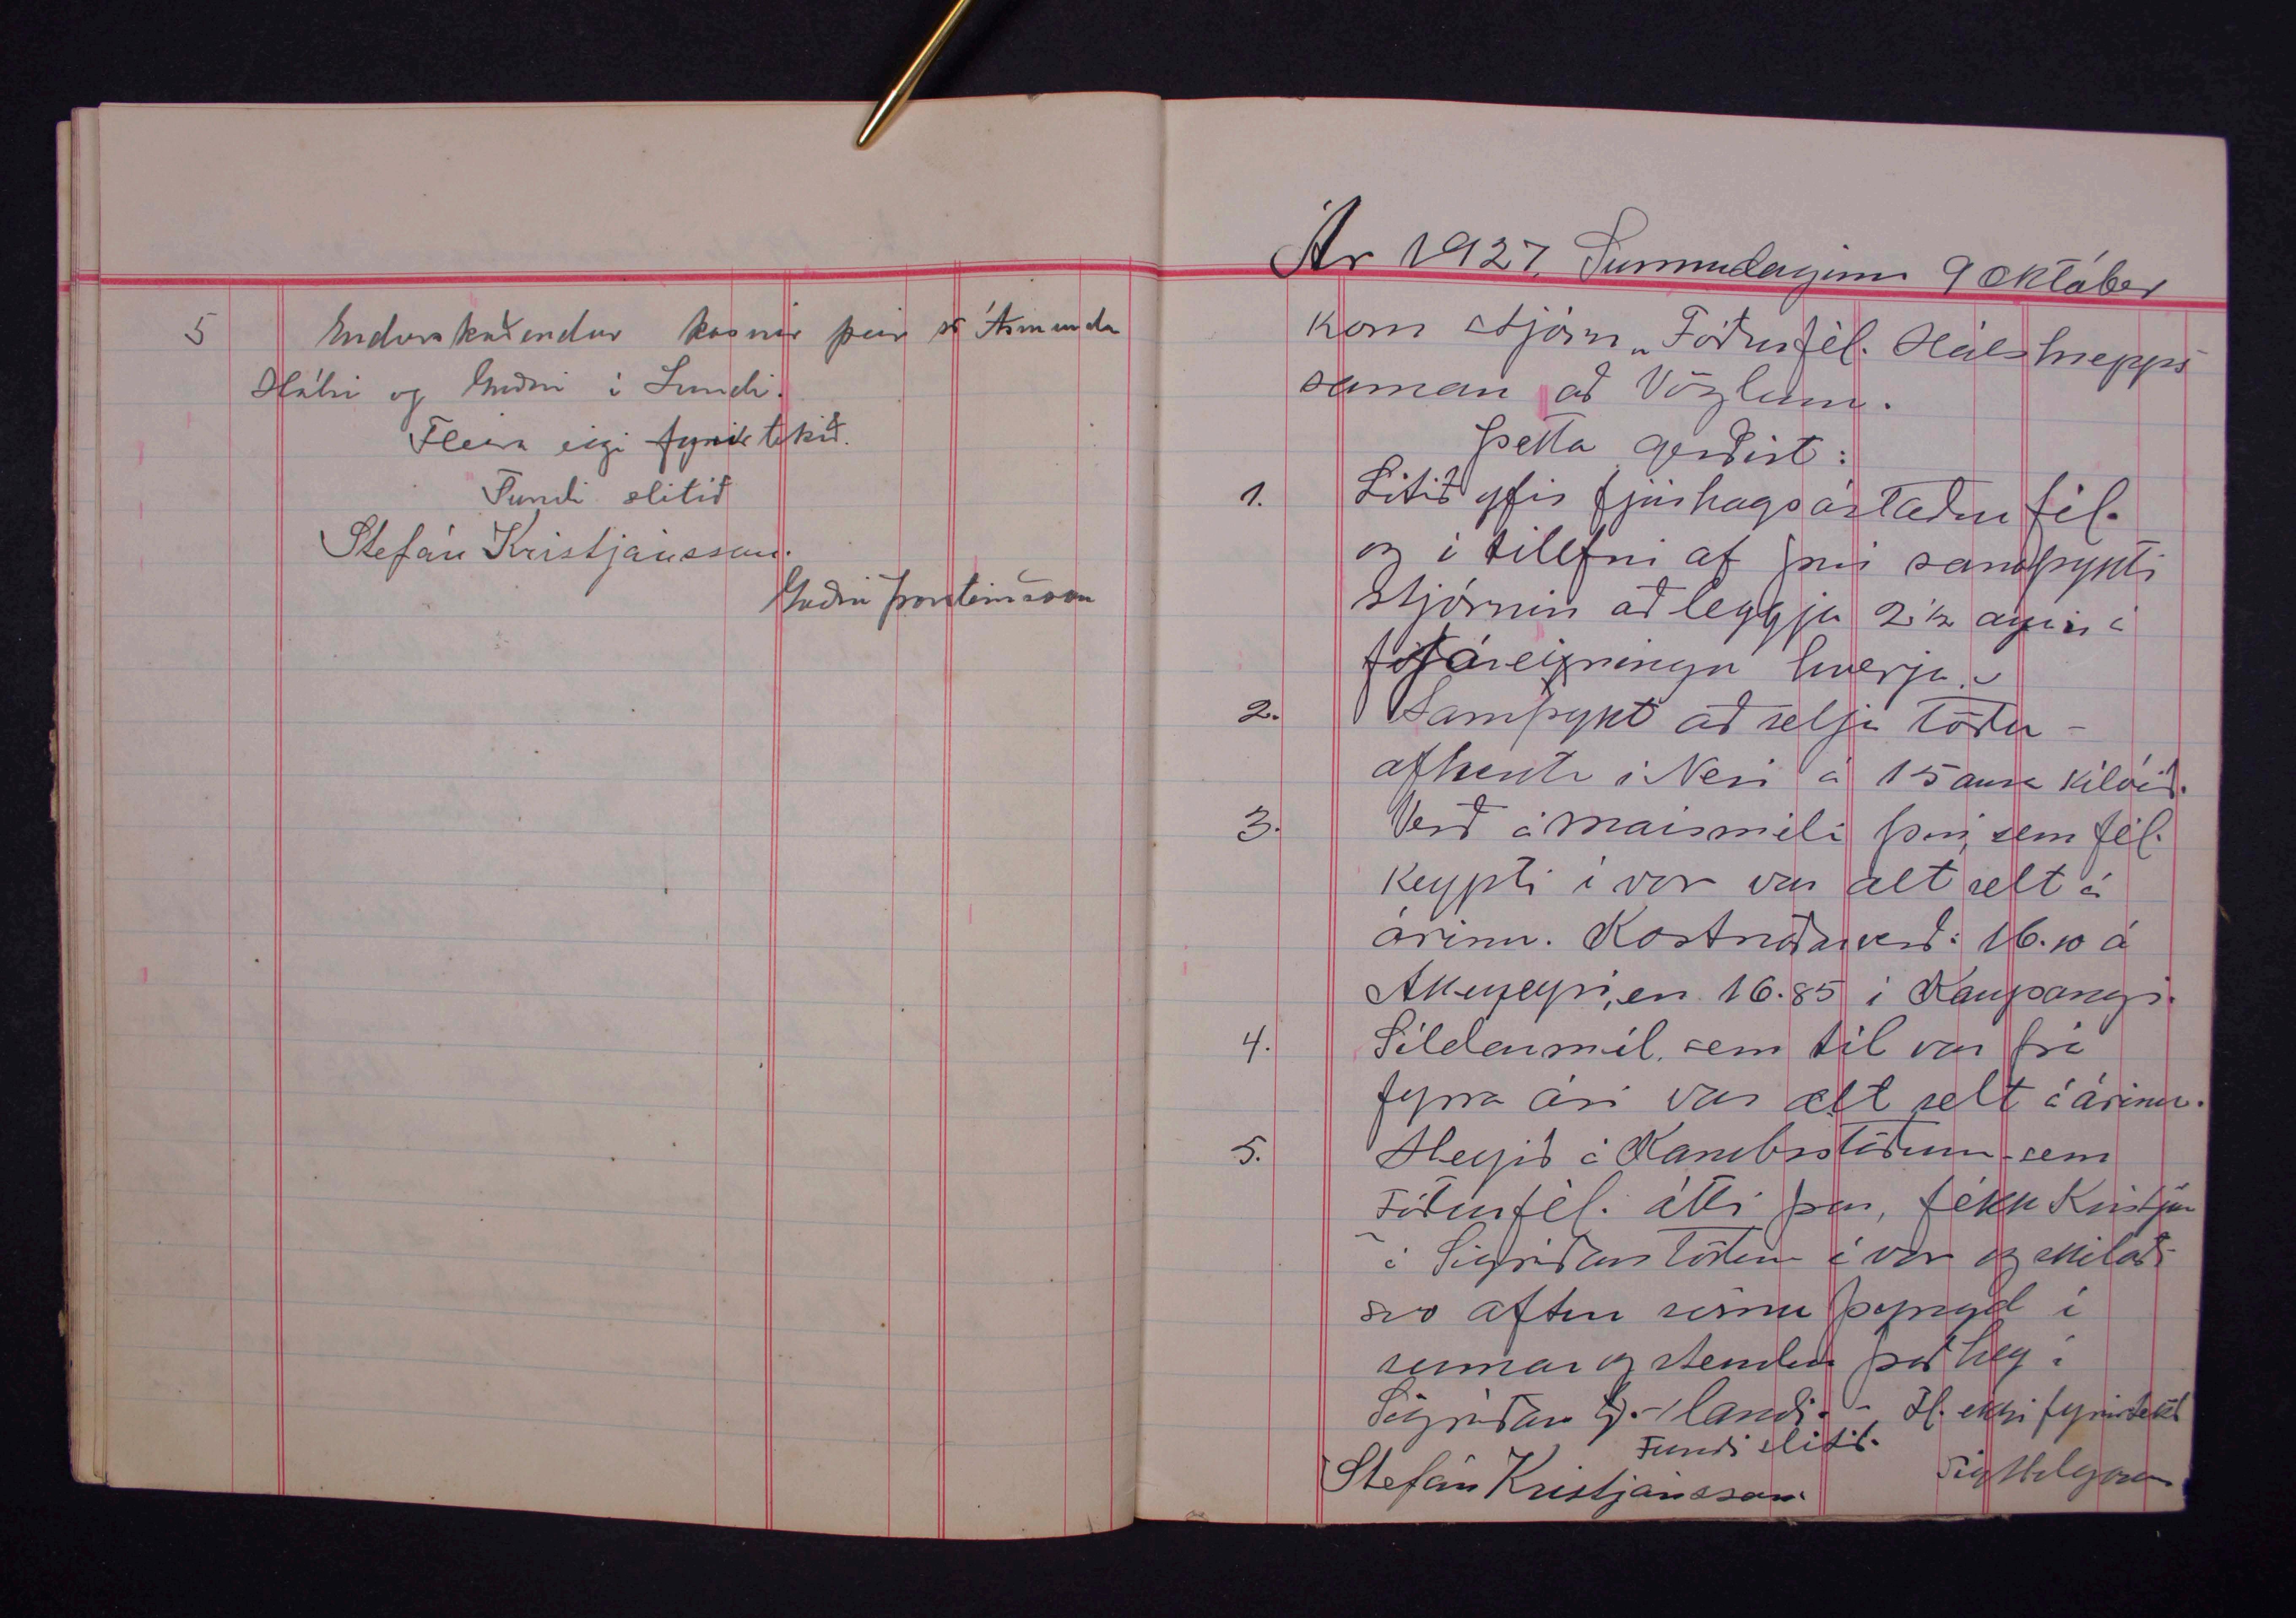 5 Endurskoðendur kosnir þeir sr Ásmundur
Hálsi og Guðni í Lundi.
Fleira eigi fyrir tekið.
Fundi slitið
Stefán Kristjánsson.
Guðni Þorsteinsson
Ár 1927, Sunnudaginn 9 október
kom stjórn „Fóðurfél. Hálshrepps
saman að Vöglum.
Þetta gerðist:
1. Litið yfir fjárhagsástæður fél.
og í tilefni af því samþykti
stjórnin að leggja 2 1/2 eyrir á
fjáreigningu hverja.
2. Samþykt að selja töðu -
afhent í Nesi á 15 aura kílóið.
3. Verð á maisméli því, sem fél.
keypti í vor var alt selt á
árinu. Kostnaðarverð: 16.10 á
Akureyri, en 16.85 í Kaupangi.
4. Síldarmél. sem til var frá
fyrra ári var alt selt á árinu.
5. Heyið á Kambsstöðum - sem
Fóðurfél. átti þar, fékk Kristján
á Sigríðarstöðum í vor og skilaði
svo aftur sömu þyngd í
sumar og stendur það hey í
Sigríðar St.-landi. - Fl. ekki fyrirtekið
Fundi slitið.
Stefán Kristjánsson. Sig Helgason